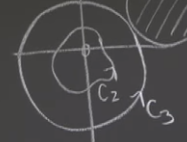 C2
C3